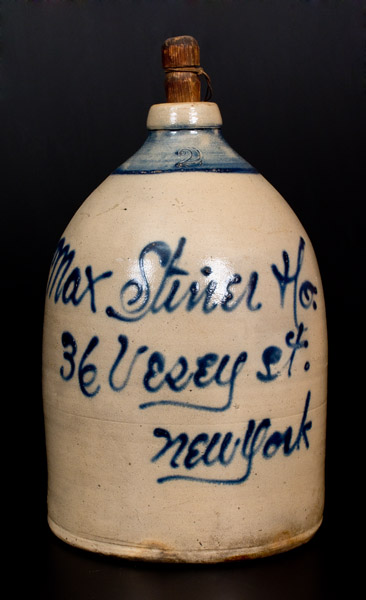 2
Max Stiner Ho.
36 Vesey st.
new york